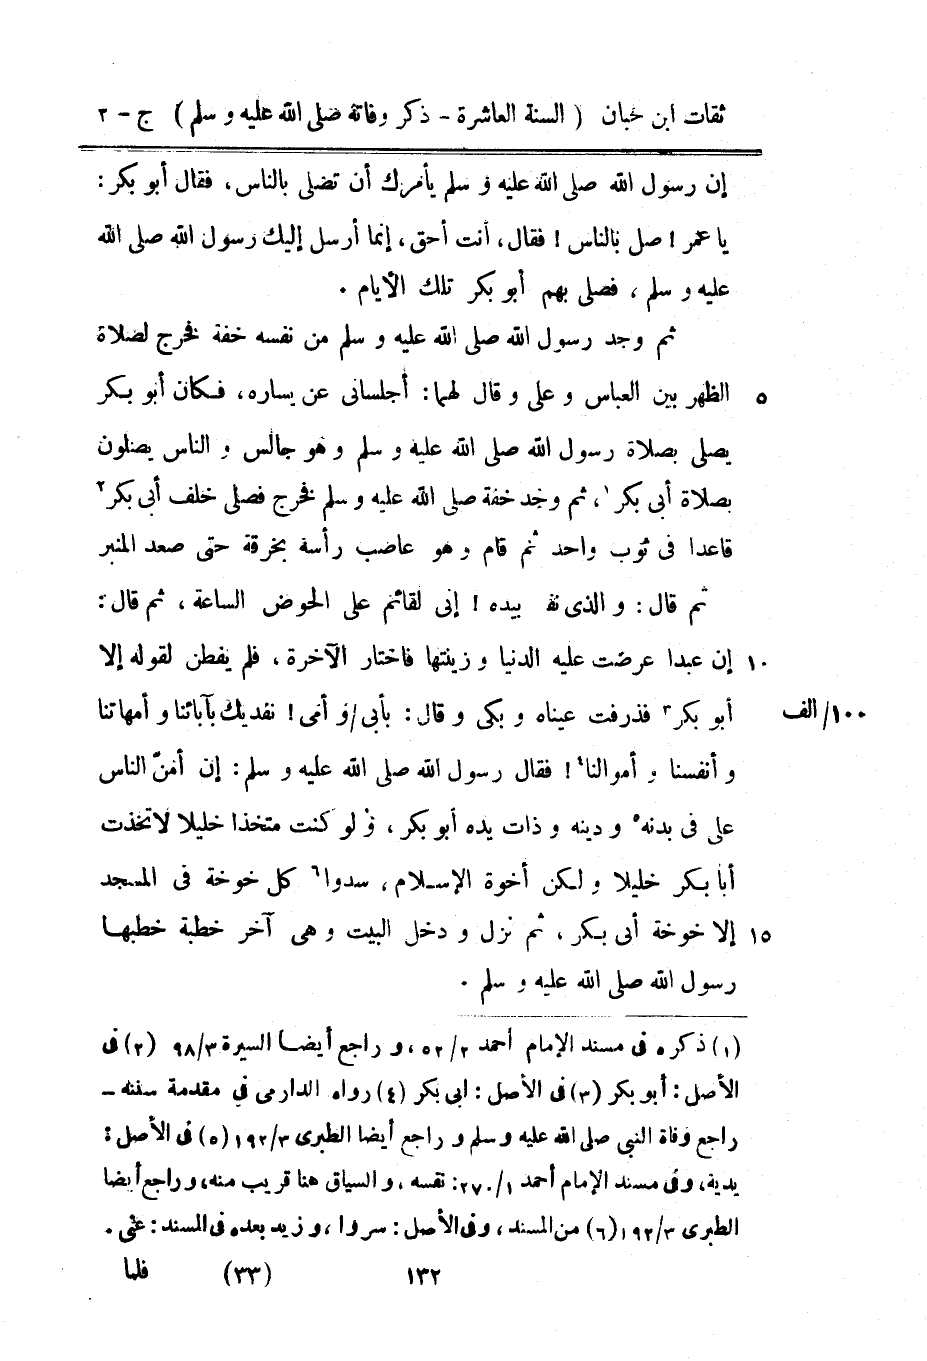 ثقات ابن حبان ( السنة العاشرة - ذكر وفاته صلى الله عليه و سلم ) ج - ٢
إن رسول الله صلى الله عليه و سلم يأمرك أن تصلى بالناس، فقال أبو بكر :
يا عمر ! صل بالناس ! فقال، أنت أحق، إنما أرسل إليك رسول الله صلى الله
عليه و سلم ، فصلى بهم أبو بكر تلك الأيام .
ثم وجد رسول الله صلى الله عليه و سلم من نفسه خفة فخرج لصلاة
٥ الظهر بين العباس و على و قال لهما : أجلسانى عن يساره ، فكان أبو بكر
يصلى بصلاة رسول الله صلى الله عليه و سلم و هو جالس و الناس يصلون
بصلاة أبى بكر ١، ثم وجد خفة صلى الله عليه و سلم فخرج فصلى خلف أبى بكر ٢
قاعدا فى ثوب واحد ثم قام و هو عاصب رأسه بخرقة حتى صعد المنبر
ثم قال : و الذى نفـ بيده ! إنى لقائم على الحوض الساعة ، ثم قال :
١٠ إن عبدا عرضت عليه الدنيا و زينتها فاختار الآخرة ، فلم يفطن لقوله إلا
١٠٠/ الف أبو بكر ٣ فذرفت عيناه و بكى و قال : بأبى /و أمى ! نفديك بآبائنا و أمهاتنا
و أنفسنا و أموالنا ٤ ! فقال رسول الله صلى الله عليه و سلم : إن أمنّ الناس
على فى بدنه ٥ و دينه و ذات يده أبو بكر ، و لو كنت متخذا خليلا لاتخذت
أبا بكر خليلا و لكن أخوة الإسلام ، سدوا ٦ كل خوخة فى المسجد
١٥ إلا خوخة أبى بكر ، ثم نزل و دخل البيت و هى آخر خطبة خطبها
رسول الله صلى الله عليه و سلم .
(١) ذكره فى مسند الإمام أحمد ٢/ ٥٢ ، و راجع أيضا السيرة ٣/ ٩٨ (٢) فى
الأصل : أبو بكر (٣) فى الأصل : ابى بكر (٤) رواه الدارمى في مقدمة سننه -
راجع وفاة النبى صلى الله عليه و سلم و راجع أيضا الطبرى ٣/ ١٩٢ (٥) فى الأصل :
يدية ، وفى مسند الإمام أحمد ١/ ٢٧٠ : نفسه ، و السياق هنا قريب منه ، و راجع أيضا
الطبرى ٣/ ١٩٢ (٦) من المسند ، وفى الأصل : سروا ، و زيد بعده فى المسند : عنى .
١٣٢ (٣٣) فلما